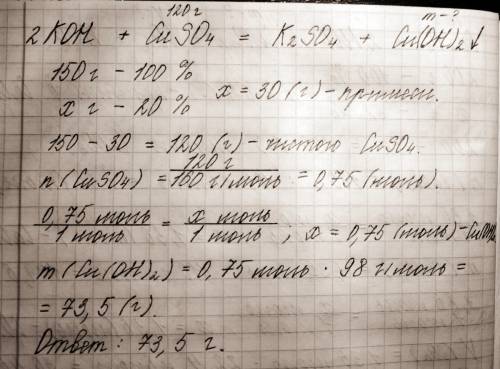 120 г m - ?
2 KOH + CuSO4 = K2SO4 + Cu(OH)2↓
150 г - 100 %
x г - 20 % x = 30 (г) - примеси.
150 - 30 = 120 (г) - чистого CuSO4.
n (CuSO4) = 120 г / 160 г/моль = 0,75 (моль).
0,75 моль / 1 моль = x моль / 1 моль ; x = 0,75 (моль) - Cu(OH)2
m (Cu(OH)2) = 0,75 моль · 98 г/моль =
= 73,5 (г).
Ответ : 73,5 г.